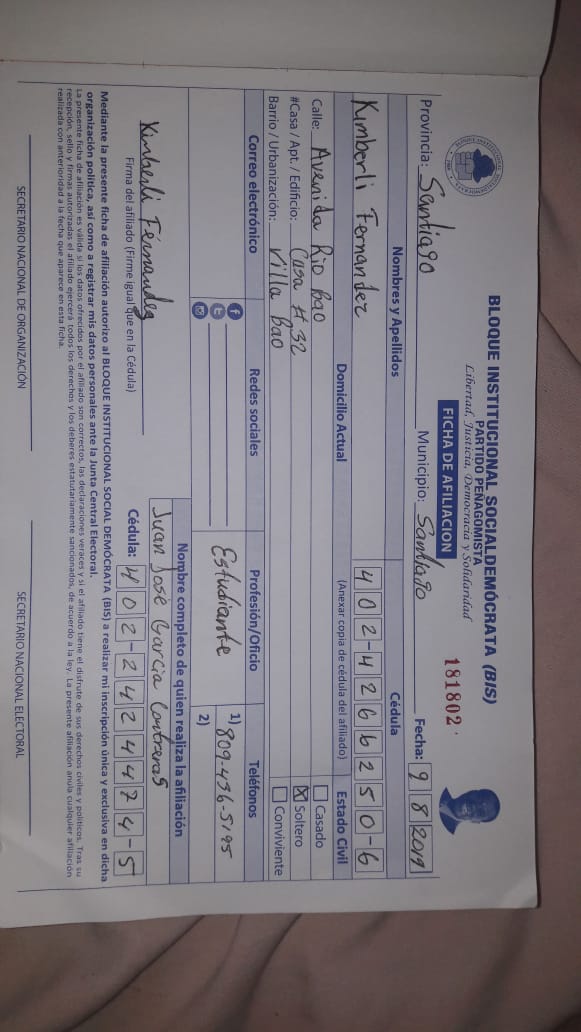 BLOQUE INSTITUCIONAL SOCIALDEMÓCRATA (BIS)
PARTIDO PEÑAGOMISTA
Libertad, Justicia, Democracia y Solidaridad
FICHA DE AFILIACION
181802
Provincia: Santiago Municipio: Santiago Fecha: 9 8 2019
Nombres y Apellidos Cédula
Kimberli Fernandez 402-4266250-6
Domicilio Actual (Anexar copia de cédula del afiliado) Estado Civil
Calle: Avenida Rio bao Casado
#Casa / Apt. / Edificio: Casa # 32 Soltero
Barrio / Urbanización: Villa bao Conviviente
Correo electrónico Redes sociales Profesión/Oficio Teléfonos
Estudiante 1) 809-436-5195
2)
Nombre completo de quien realiza la afiliación
Juan Jose Garcia Contreras
Kimberli Fernandez
Firma del afiliado (Firme igual que en la Cédula) Cédula: 402-2424424-5
Mediante la presente ficha de afiliación autorizo al BLOQUE INSTITUCIONAL SOCIAL DEMÓCRATA (BIS) a realizar mi inscripción única y exclusiva en dicha
organización política, así como a registrar mis datos personales ante la Junta Central Electoral.
La presente ficha de afiliación es válida si los datos ofrecidos por el afiliado son correctos, las declaraciones veraces y si el afiliado tiene el disfrute de sus derechos civiles y políticos. Tras su
recepción, sello y firmas autorizadas el afiliado ejercerá todos los derechos y los deberes estatutariamente sancionados, de acuerdo a la ley. La presente afiliación anula cualquier afiliación
realizada con anterioridad a la fecha que aparece en esta ficha.
SECRETARIO NACIONAL DE ORGANIZACIÓN SECRETARIO NACIONAL ELECTORAL